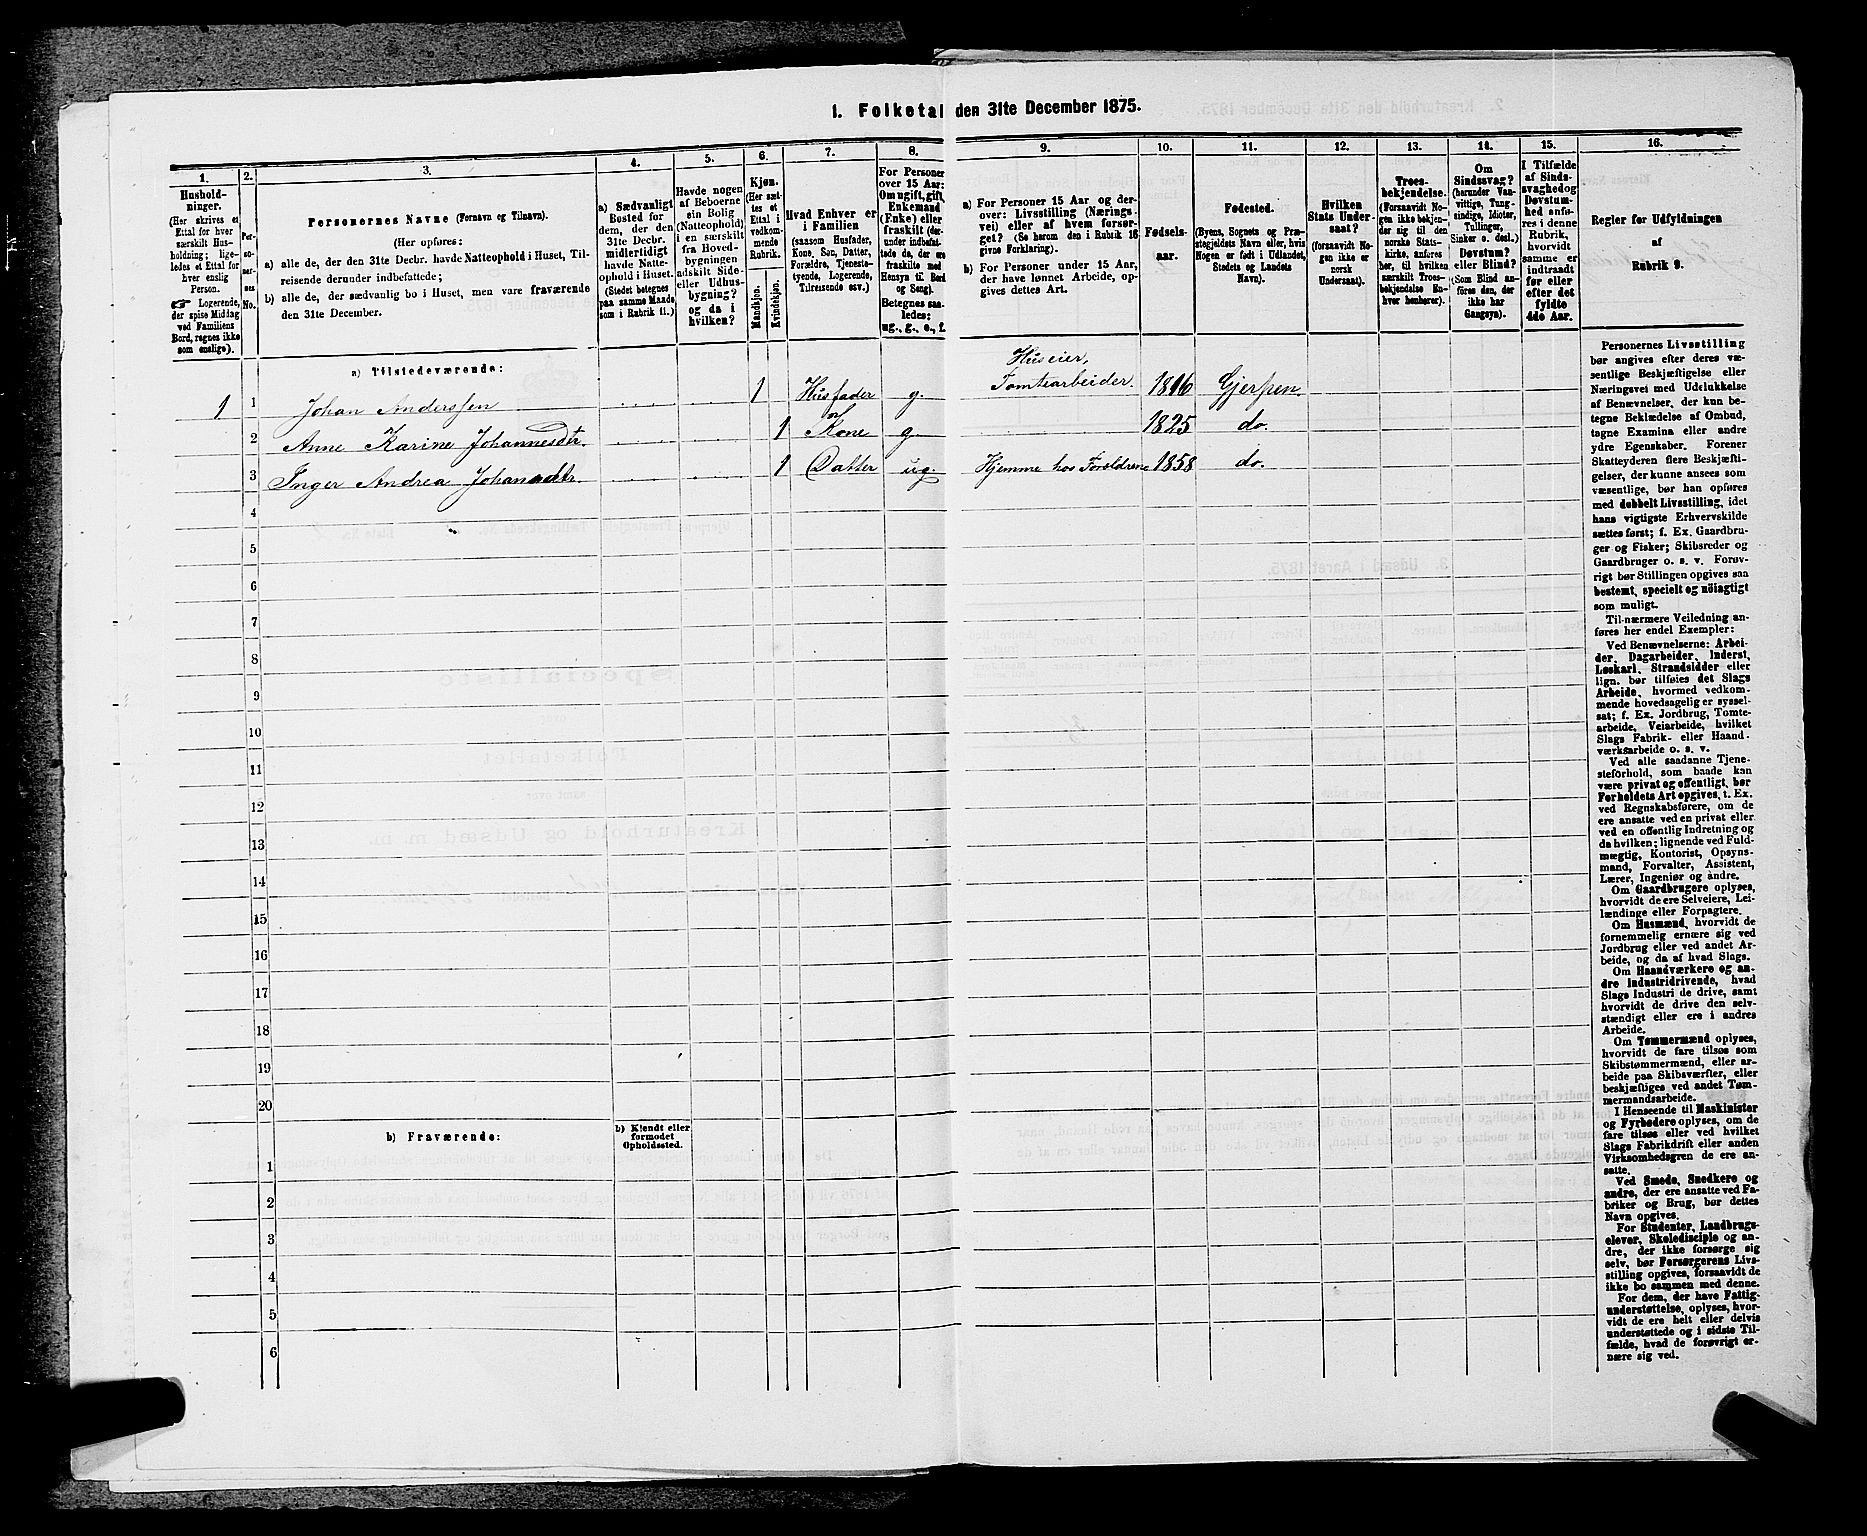 1. Folketal den 31te December 1875.
1. 2. 3. 4. 5. 6. 7. 8. 9. 10. 11. 12. 13. 14. 15. 16.
Hushold-
ninger.
(Her skrives et
Ettal for hver
særskilt Hus-
holdning; lige-
ledes et Ettal for
hver enslig
Person.
☞ Logerende,
der spise Middag
ved Familiens
Bord, regnes ikke
som enslige).
Per-
so-
ner-
nes
No.
Personernes Navne (Fornavn og Tilnavn).
(Her opføres:
a) alle de, der den 31te Decbr. havde Natteophold i Huset, Til-
reisende derunder indbefattede;
b) alle de, der sædvanlig bo i Huset, men vare fraværende
den 31te December.
a) Sædvanligt
Bosted for
dem, der den
31te Decbr.
midlertidigt
havde Natte-
ophold i Huset.
(Stedet betegnes
paa samme Maade
som i Rubrik 11.)
Havde nogen
af Beboerne
sin Bolig
(Natteophold)
i en særskilt
fra Hoved-
bygningen
adskilt Side-
eller Udhus-
bygning?
og da i
hvilken?
Kjøn.
(Her sæt-
tes et
Ettal i
vedkom-
mende
Rubrik.
Mandkjøn.
Kvindekjøn.
Hvad Enhver er
i Familien
(saasom Husfader,
Kone, Søn, Datter,
Forældre, Tjeneste-
tyende, Logerende,
Tilreisende osv.)
For Personer
over 15 Aar:
Om ugift, gift,
Enkemand
(Enke) eller
fraskilt (der-
under indbefat-
tede de, der ere
fraskilte med
Hensyn til Bord
og Seng).
Betegnes saa-
ledes:
ug., g., e., f.
a) For Personer 15 Aar og der-
over: Livsstilling (Nærings-
vei) eller af hvem forsør-
get? (Se herom den i Rubrik 16
givne Forklaring).
b) For Personer under 15 Aar,
der have lønnet Arbeide, op-
gives dettes Art.
Fødsels-
aar.
Fødested.
(Byens, Sognets og Præ-
stegjeldets Navn eller, hvis
Nogen er født i Udlandet,
Stedets og Landets
Navn).
Hvilken
Stats Under-
saat?
(forsaavidt No-
gen ikke er
norsk
Undersaat).
Troes-
bekjendelse.
(Forsaavidt No-
gen ikke bekjen-
der sig til den
norske Stats-
kirke, anføres
her, til hvilken
særskilt Troes-
bekjendelse En-
hver henhører).
Om
Sindssvag?
(herunder Van-
vittige, Tung-
sindige, Idioter,
Sinker o. desl.)
Døvstum?
eller Blind?
(Som Blind an-
føres den, der
ikke har
Gangsyn).
I Tilfælde
af Sinds-
svaghed og
Døvstum-
hed anfø-
res i denne
Rubrik,
hvorvidt
samme er
indtraadt
før eller
efter det
fyldte
4de Aar.
Regler for Udfyldningen
af
Rubrik 9.
a) Tilstedeværende:
1 1 Johan Anderssen 1 Husfader g. Huseier, Tomtearbeider. 1816 Gjerpen.
2 Anne Karine Johannesdtr. 1 Kone g. 1825 do.
3 Inger Andrea Johansdtr. 1 Datter ug. Hjemme hos Foreldrene 1858 do.
4
5
6
7
8
9
10
11
12
13
14
15
16
17
18
19
20
b) Fraværende:
b) Kjendt eller
formodet
Opholdssted.
1
2
3
4
5
6
Personernes Livsstilling
bør angives efter deres væ-
sentlige Beskjæftigelse eller
Næringsvei med Udelukkelse
af Benævnelser, der kun be-
tegne Beklædelse af Ombud,
tagne Examina eller andre
ydre Egenskaber. Forener
Skatteyderen flere Beskjæfti-
gelser, der kunne ansees som
væsentlige, bør han opføres
med dobbelt Livsstilling, idet
hans vigtigste Erhvervskilde
sættes først; f. Ex. Gaardbru-
ger og Fisker; Skibsreder og
Gaardbruger o. s. v. Forøv-
rigt bør Stillingen opgives saa
bestemt, specielt og nöiagtigt
som muligt.
Til nærmere Veiledning an-
føres her endel Exempler:
Ved Benævnelserne: Arbei-
der, Dagarbeider, Inderst,
Løskarl, Strandsidder eller
lign. bør tilføies det Slags
Arbeide, hvormed vedkom-
mende hovedsagelig er syssel-
sat; f. Ex. Jordbrug, Tomte-
arbeide, Veiarbeide, hvilket
Slags Fabrik- eller Haand-
værksarbeide o. s. v.
Ved alle saadanne Tjene-
steforhold, som baade kan
være privat og offentligt, bør
Forholdets Art opgives, t. Ex.
ved Regnskabsførere, om de
ere ansatte ved en privat eller
ved en offentlig Indretning og
da hvilken; lignende ved Fuld-
mægtig, Kontorist, Opsyns-
mand, Forvalter, Assistent,
Lærer, Ingeniør og andre.
Om Gaardbrugere oplyses,
hvorvidt de ere Selveiere, Lei-
lændinge eller Forpagtere.
Om Husmænd, hvorvidt de
fornemmelig ernære sig ved
Jordbrug eller ved andet Ar-
beide, og da af hvad Slags.
Om Haandværkere og an-
dre Industridrivende, hvad
Slags Industri de drive, samt
hvorvidt de drive den selv-
stændigt eller ere i andres
Arbeide.
Om Tømmermænd oplyses,
hvorvidt de fare tilsøs som
Skibstømmermænd, eller ar-
beide paa Skibsværfter, eller
beskjæftiges ved andet Tøm-
mermandsarbeide.
I Henseende til Maskinister
og Fyrbødere oplyses, om de
fare tilsøs eller ved hvilket
Slags Fabrikdrift eller anden
Virksomhedsgren de ere an-
satte.
Ved Smede, Snedkere og
andre, der ere ansatte ved Fa-
briker og Brug, bør dettes
Navn opgives.
For Studenter, Landbrugs-
elever, Skoledisciple og an-
dre, der ikke forsørge sig
selv, bør Forsørgerens Livs-
stilling opgives, forsaavidt de
ikke bo sammen med denne.
For dem, der have Fattig-
understøttelse, oplyses, hvor-
vidt de ere helt eller delvis
understøttede og i sidste Til-
fælde, hvad de forøvrigt er-
nære sig ved.